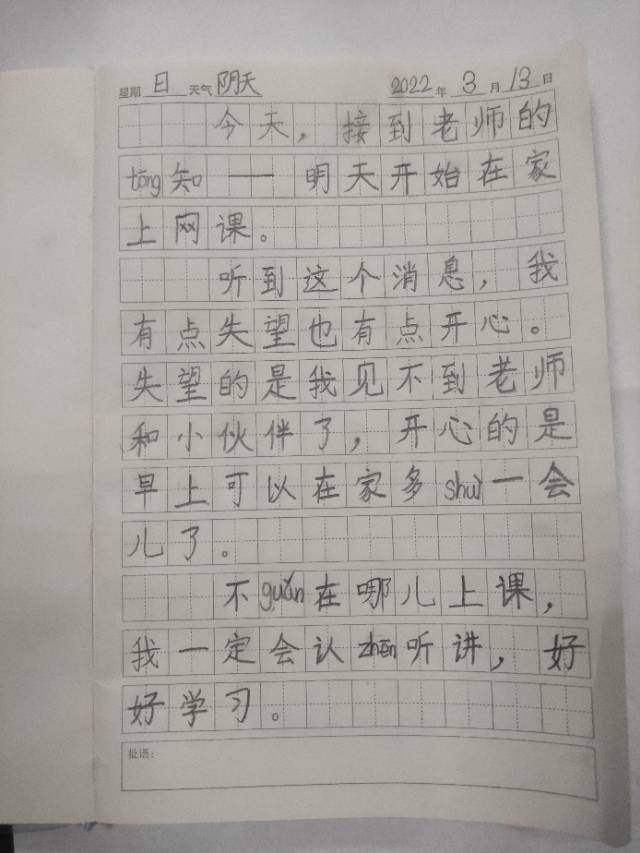 星期 日 天气 阴天 2022 年 3 月 13 日
今天，接到老师的
tōng知——明天开始在家
上网课。
听到这个消息，我
有点失望也有点开心。
失望的是我见不到老师
和小伙伴了，开心的是
早上可以在家多shuì一会
儿了。
不guǎn在哪儿上课，
我一定会认zhēn听讲，好
好学习。
批语：